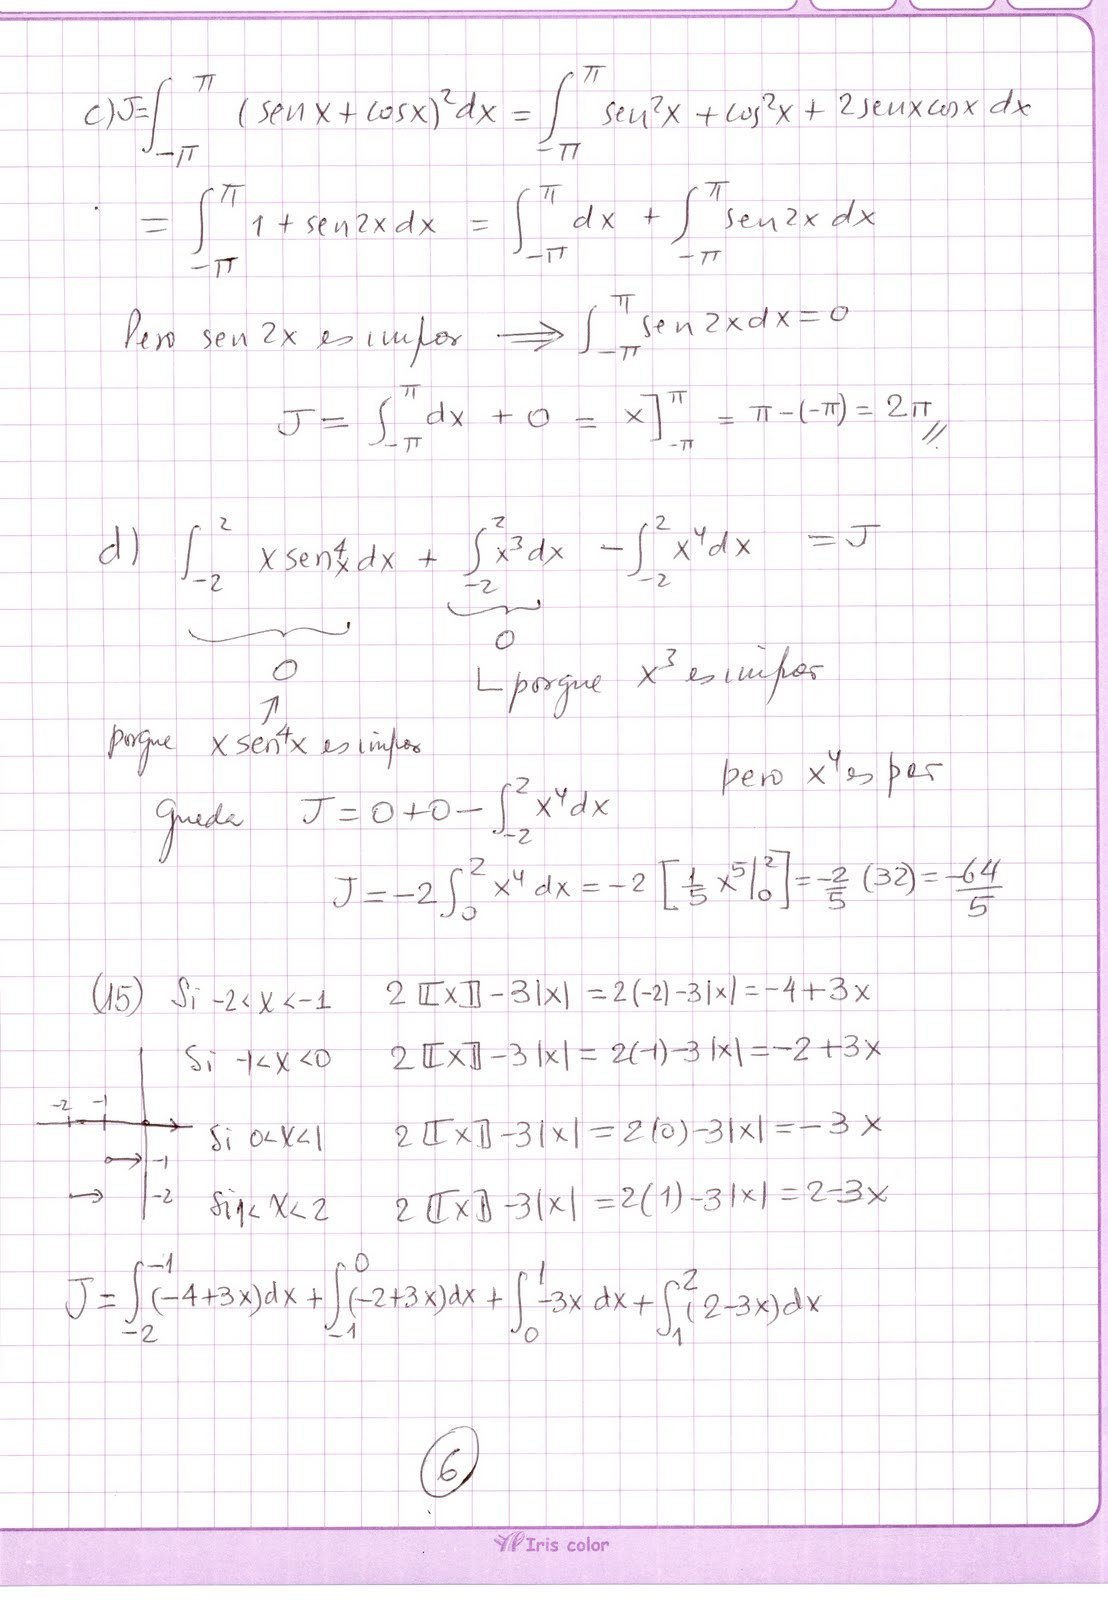 c) J = ∫_{-π}^{π} (sen x + cos x)² dx = ∫_{-π}^{π} sen²x + cos²x + 2 sen x cos x dx
= ∫_{-π}^{π} 1 + sen 2x dx = ∫_{-π}^{π} dx + ∫_{-π}^{π} sen 2x dx
Pero sen 2x es impar ⟹ ∫_{-π}^{π} sen 2x dx = 0
J = ∫_{-π}^{π} dx + 0 = x]_{-π}^{π} = π - (-π) = 2π //
d) ∫_{-2}^{2} x sen⁴x dx + ∫_{-2}^{2} x³ dx - ∫_{-2}^{2} x⁴ dx = J
0
0
porque x³ es impar
porque x sen⁴x es impar
pero x⁴ es par
queda J = 0 + 0 - ∫_{-2}^{2} x⁴ dx
J = -2 ∫_{0}^{2} x⁴ dx = -2 [1/5 x⁵|_{0}^{2}] = -2/5 (32) = -64/5
(15) Si -2 < x < -1 2 ⟦x⟧ - 3|x| = 2(-2) - 3|x| = -4 + 3x
Si -1 < x < 0 2 ⟦x⟧ - 3|x| = 2(-1) - 3|x| = -2 + 3x
-2 -1
Si 0 < x < 1 2 ⟦x⟧ - 3|x| = 2(0) - 3|x| = -3x
-1
-2
Si 1 < x < 2 2 ⟦x⟧ - 3|x| = 2(1) - 3|x| = 2 - 3x
J = ∫_{-2}^{-1} (-4 + 3x) dx + ∫_{-1}^{0} (-2 + 3x) dx + ∫_{0}^{1} -3x dx + ∫_{1}^{2} (2 - 3x) dx
6
Iris color